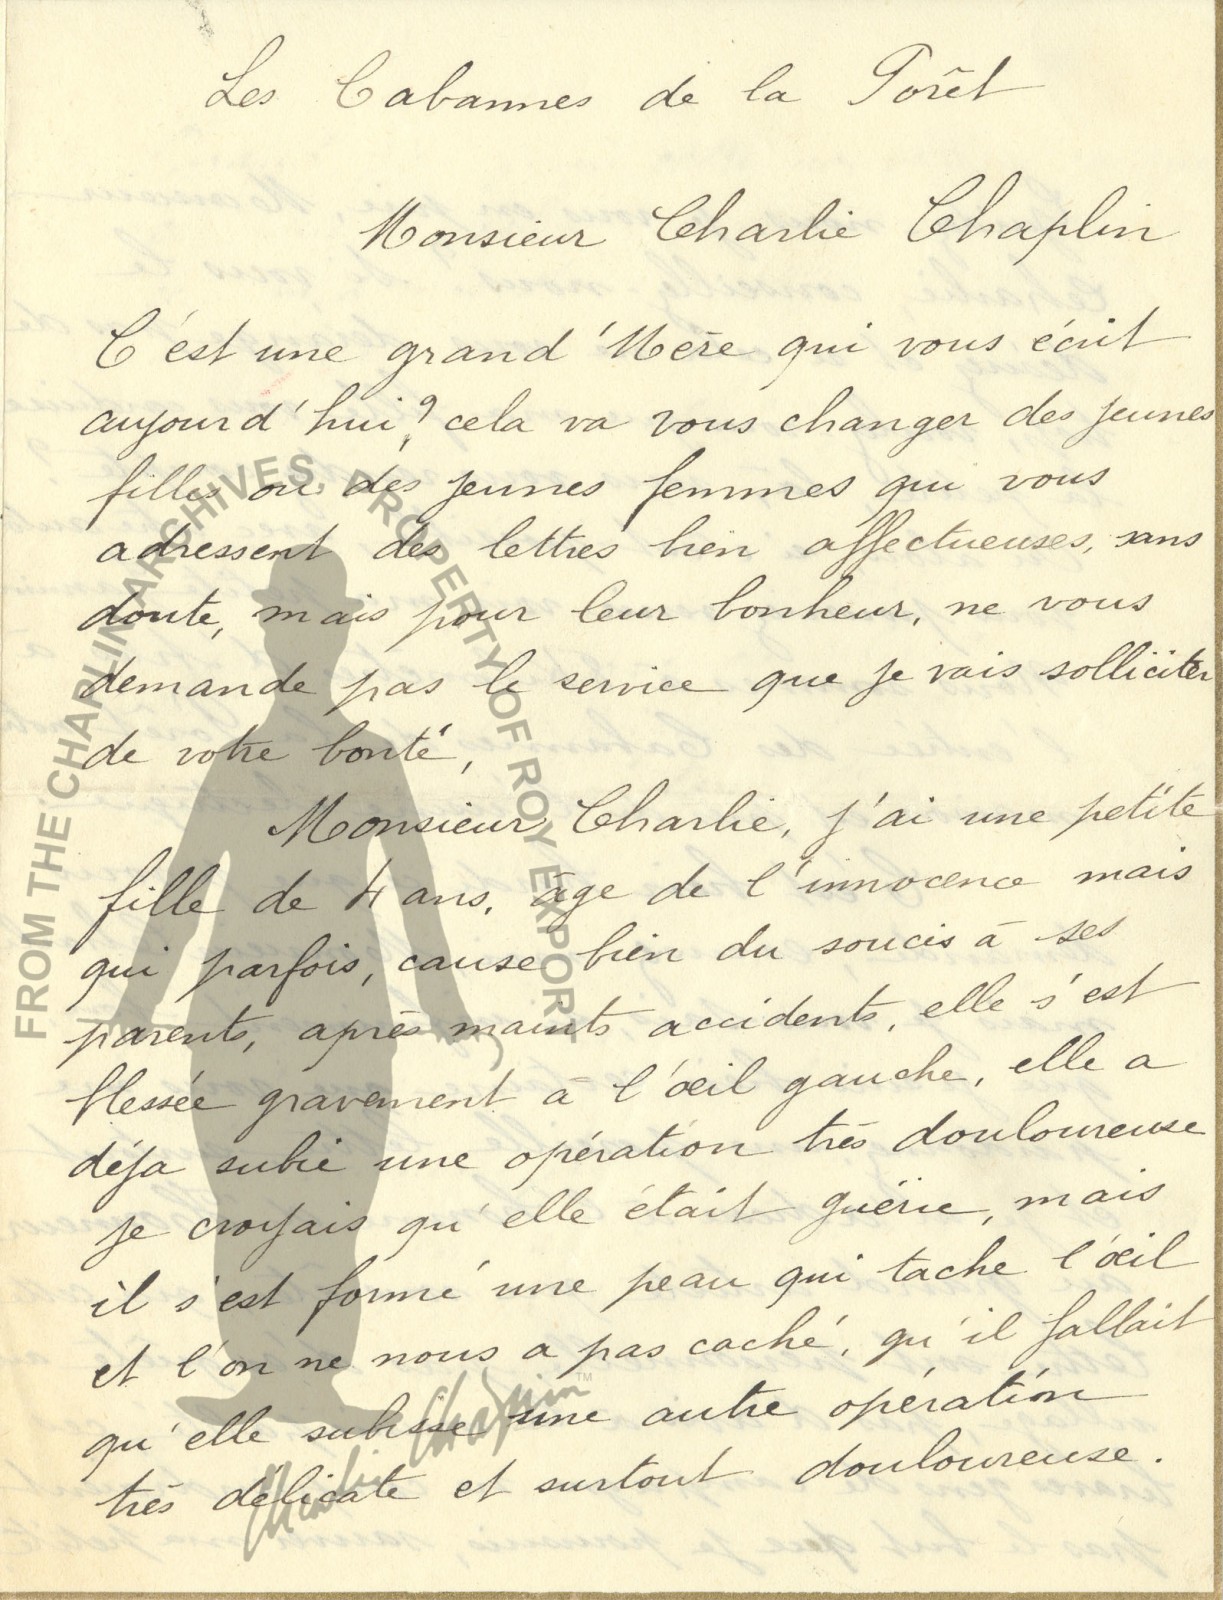 Les Cabannes de la Forêt
Monsieur Charlie Chaplin
C'est une grand'Mère qui vous écrit
aujourd'hui, cela va vous changer des jeunes
filles ou des jeunes femmes qui vous
adressent des lettres bien affectueuses, sans
doute, mais pour leur bonheur, ne vous
demande pas le service que je vais solliciter
de votre bonté,
Monsieur Charlie, j'ai une petite
fille de 4 ans, âge de l'innocence mais
qui parfois, cause bien du soucis à ses
parents, après maints accidents, elle s'est
blessée gravement à l'œil gauche, elle a
déja subie une opération très douloureuse
je croyais qu'elle était guérie, mais
il s'est formé une peau qui tache l'œil
et l'on ne nous a pas caché, qu'il fallait
qu'elle subisse une autre opération
très délicate et surtout douloureuse.
FROM THE CHARLIN ARCHIVES, PROPERTY OF ROY EXPORT
Charlie Chaplin™